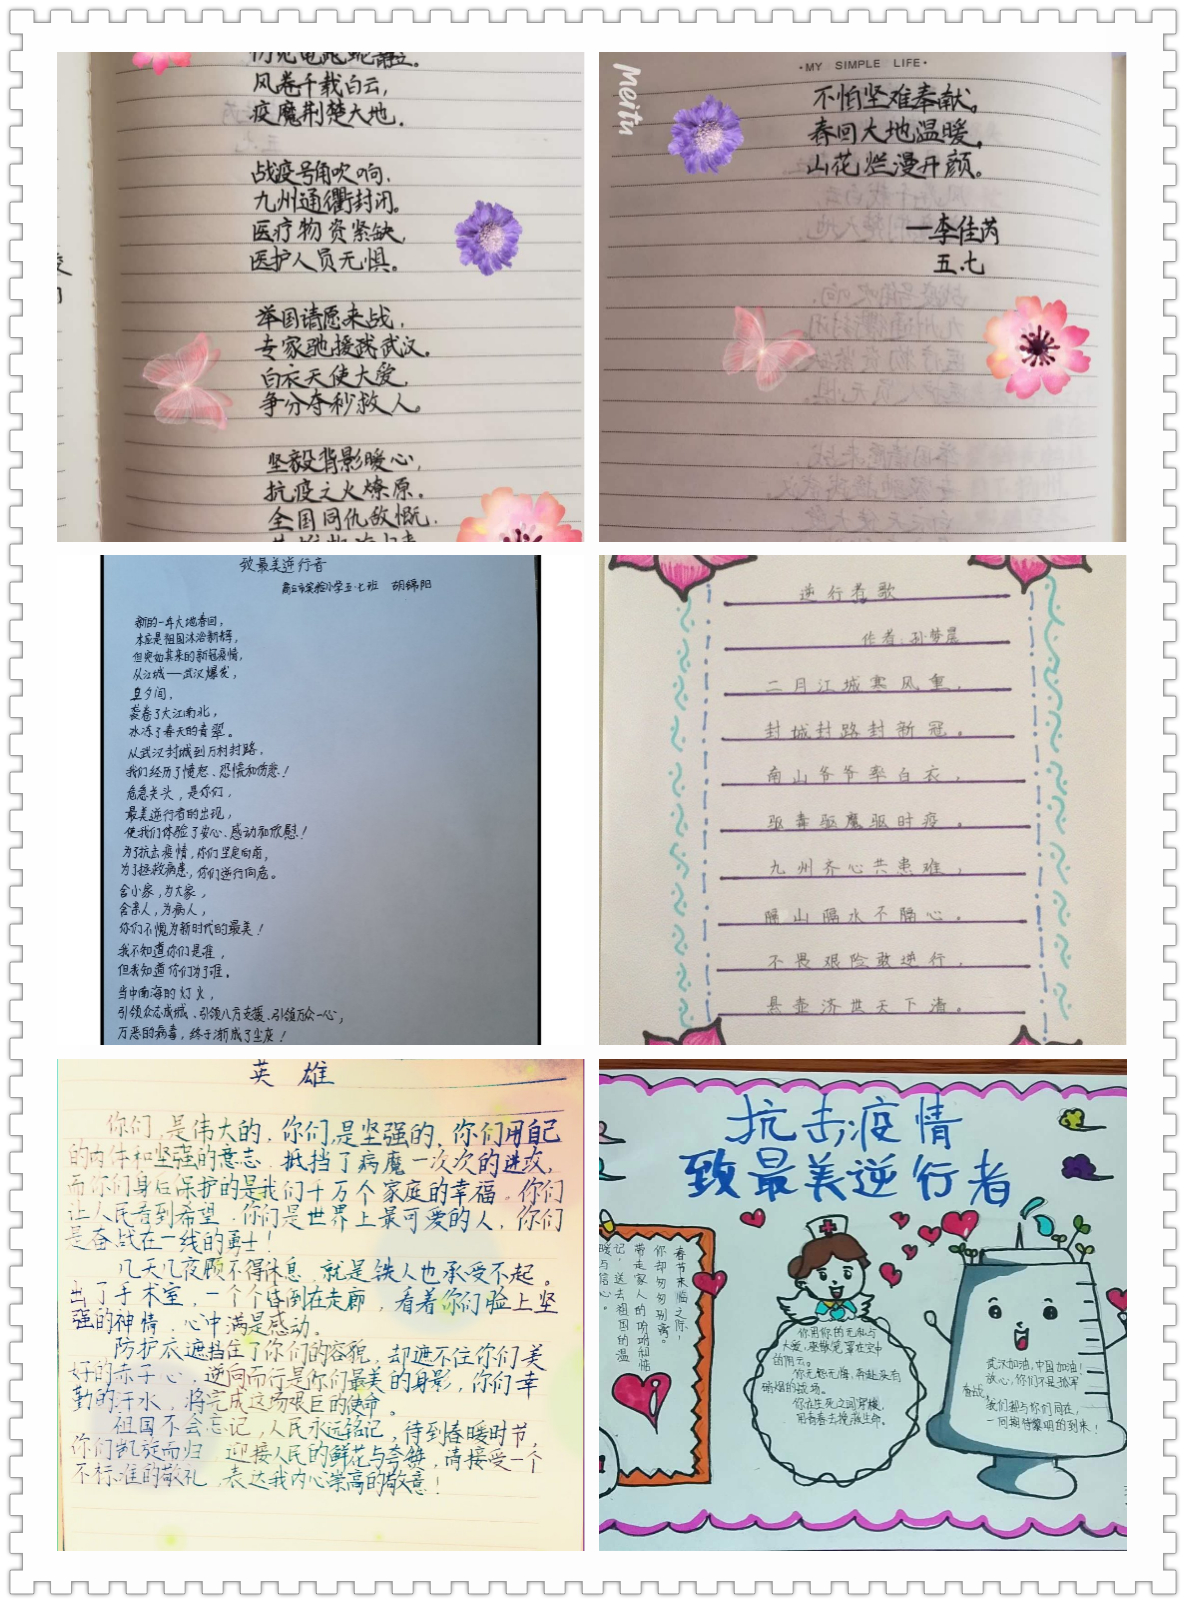 风卷千载白云，
疫魔荆楚大地。
战疫号角吹响，
九州通衢封闭。
医疗物资紧缺，
医护人员无惧。
举国请愿来战，
专家驰援我武汉。
白衣天使大爱，
争分夺秒救人。
坚毅背影暖心，
抗疫之火燎原。
全国同仇敌慨，
·MY SIMPLE LIFE·
Meitu
不怕坚难奉献，
春回大地温暖，
山花烂漫开颜。
—李佳芮
五.七
致最美逆行者
商丘市实验小学五.七班 胡锦阳
新的一年大地春回，
本应是祖国沐浴新辉，
但突如其来的新冠疫情，
从江城——武汉爆发，
旦夕间，
袭卷了大江南北，
冰冻了春天的青翠。
从武汉封城到万村封路，
我们经历了愤怒、恐慌和伤悲！
危急关头，是你们，
最美逆行者的出现，
使我们体验了安心、感动和欣慰！
为了抗击疫情，你们坚定向前，
为了拯救病患，你们逆行向危。
舍小家，为大家，
舍亲人，为病人，
你们不愧为新时代的最美！
我不知道你们是谁，
但我知道你们为了谁。
当中南海的灯火，
引领众志成城、引领八方支援、引领万众一心，
万恶的病毒，终于渐成了尘灰！
逆行者歌
作者：孙梦晨
二月江城寒风重，
封城封路封新冠。
南山爷爷率白衣，
驱毒驱魔驱时疫。
九州齐心共患难，
隔山隔水不隔心。
不畏艰险敢逆行，
悬壶济世天下清。
英 雄
你们是伟大的，你们是坚强的，你们用自己
的肉体和坚强的意志，抵挡了病魔一次次的进攻，
而你们身后保护的是我们千万个家庭的幸福。你们
让人民看到希望，你们是世界上最可爱的人，你们
是奋战在一线的勇士！
几天几夜顾不得休息，就是铁人也承受不起。
出了手术室，一个个昏倒在走廊，看着你们脸上坚
强的神情，心中满是感动。
防护衣遮挡住了你们的容貌，却遮不住你们美
好的赤子心，逆向而行是你们最美的身影，你们辛
勤的汗水，将完成这场艰巨的使命。
祖国不会忘记，人民永远铭记，待到春暖时节，
你们凯旋而归，迎接人民的鲜花与夸赞，请接受一个
不标准的敬礼，表达我内心崇高的敬意！
抗击疫情
致最美逆行者
春节来临之际，
你却匆匆别离。
带走家人的叮咛和惦
记，送去祖国的温
暖与信
心。
你用你的无私与
大爱，驱散笼罩在空中
的阴云。
你无怨无悔，奔赴没有
硝烟的战场。
你在生死之间穿梭，
用青春去挽救生命。
武汉加油，中国加油！
放心，你们不是孤军
奋战，
我们都与你们同在，
一同期待黎明的到来！